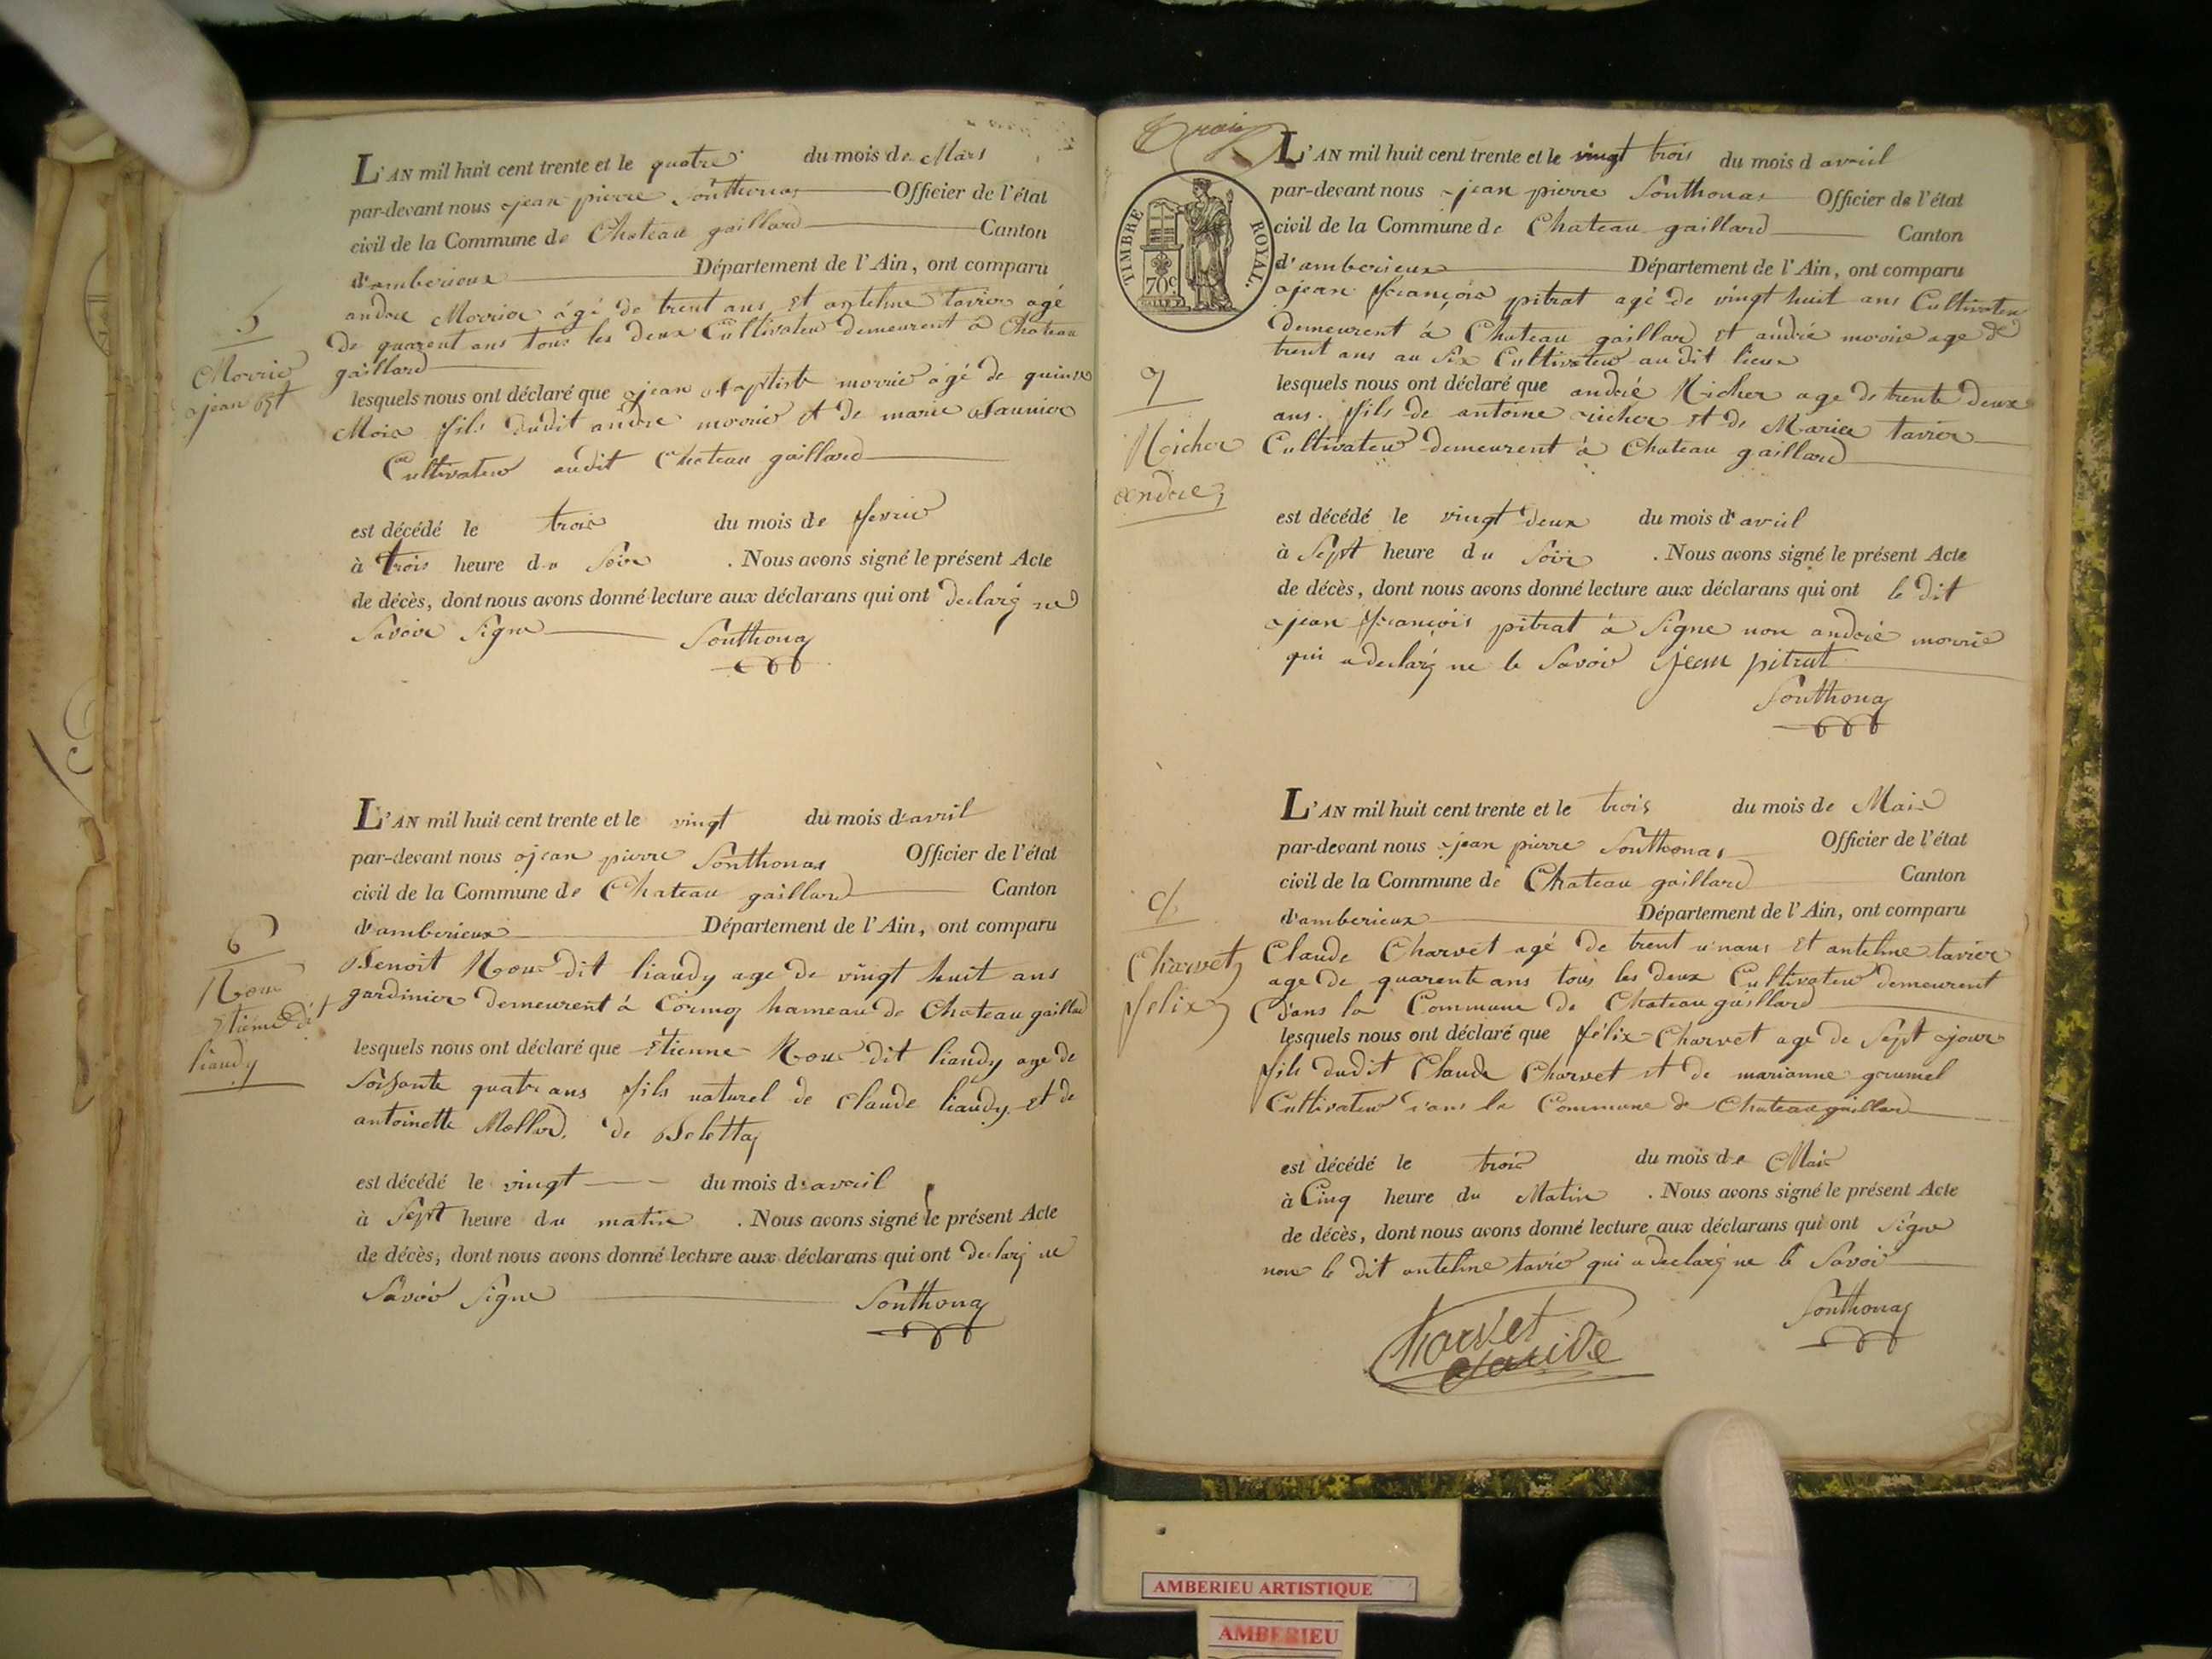 L'AN mil huit cent trente et le quatre du mois de Mars
par-devant nous jean pierre Sonthonas Officier de l'état
civil de la Commune de Chateau gaillard Canton
d'amberieux Département de l'Ain, ont comparu
andre Morrier âgé de trent ans et antelme tavier agé
de quarent ans tous les deux Cultivateur demeurent a Chateau
gaillard
5
Morrier
jean Bst
lesquels nous ont déclaré que jean Baptiste morrie âgé de quinze
Mois fils dudit andre morrie et de marie Saunier
Cultivateur audit Chateau gaillard
est décédé le trois du mois de fevrier
à trois heure du Soir . Nous avons signé le présent Acte
de décès, dont nous avons donné lecture aux déclarans qui ont declaré ne
Savoir Signe Sonthonas
L'AN mil huit cent trente et le vingt du mois d'avril
par-devant nous jean pierre Sonthonas Officier de l'état
civil de la Commune de Chateau gaillard Canton
d'amberieux Département de l'Ain, ont comparu
Benoit Roux dit liaudy age de vingt huit ans
gardinier demeurent à Cormoz hameau de Chateau gaillard
6
Roux
Etienne dit
liaudy
lesquels nous ont déclaré que Etienne Roux dit liaudy age de
Soisante quatre ans fils naturel de Claude liaudy et de
antoinette Mollard de
est décédé le vingt du mois d'avril
à Sept heure du matin . Nous avons signé le présent Acte
de décès, dont nous avons donné lecture aux déclarans qui ont declaré ne
Savoir Signe Sonthonas
Trois
L'AN mil huit cent trente et le vingt trois du mois d avril
par-devant nous jean pierre Sonthonas Officier de l'état
civil de la Commune de Chateau gaillard Canton
d'amberieux Département de l'Ain, ont comparu
TIMBRE ROYAL.
70c
jean François pitrat agé de vingt huit ans Cultivateur
demeurent à Chateau gaillard et andré morrie age de
trent ans au Six Cultivateur audit lieux
7
Richer
andre
lesquels nous ont déclaré que andré Richer age de trente deux
ans fils de antoine richer et de Marie tavier
Cultivateur demeurent à Chateau gaillard
est décédé le vingt deux du mois d'avril
à Sept heure du Soir . Nous avons signé le présent Acte
de décès, dont nous avons donné lecture aux déclarans qui ont le dit
jean François pitrat à Signe non andré morrie
qui a declaré ne le Savoir jean pitrat
Sonthonas
L'AN mil huit cent trente et le trois du mois de Mai
par-devant nous jean pierre Sonthonas Officier de l'état
civil de la Commune de Chateau gaillard Canton
d'amberieux Département de l'Ain, ont comparu
Claude Charvet agé de trent un ans et antelme tavier
age de quarente ans tous les deux Cultivateur demeurent
dans la Commune de Chateau gaillard
Charvet
felix
lesquels nous ont déclaré que félix Charvet age de Sept jour
fils dudit Claude Charvet et de marianne grumel
Cultivateur dans la Commune de Chateau gaillard
est décédé le trois du mois de Mai
à Cinq heure du Matin . Nous avons signé le présent Acte
de décès, dont nous avons donné lecture aux déclarans qui ont Signe
non le dit antelme tavie qui a declaré ne le Savoir
Sonthonas
Charvet
claude
AMBERIEU ARTISTIQUE
AMBERIEU